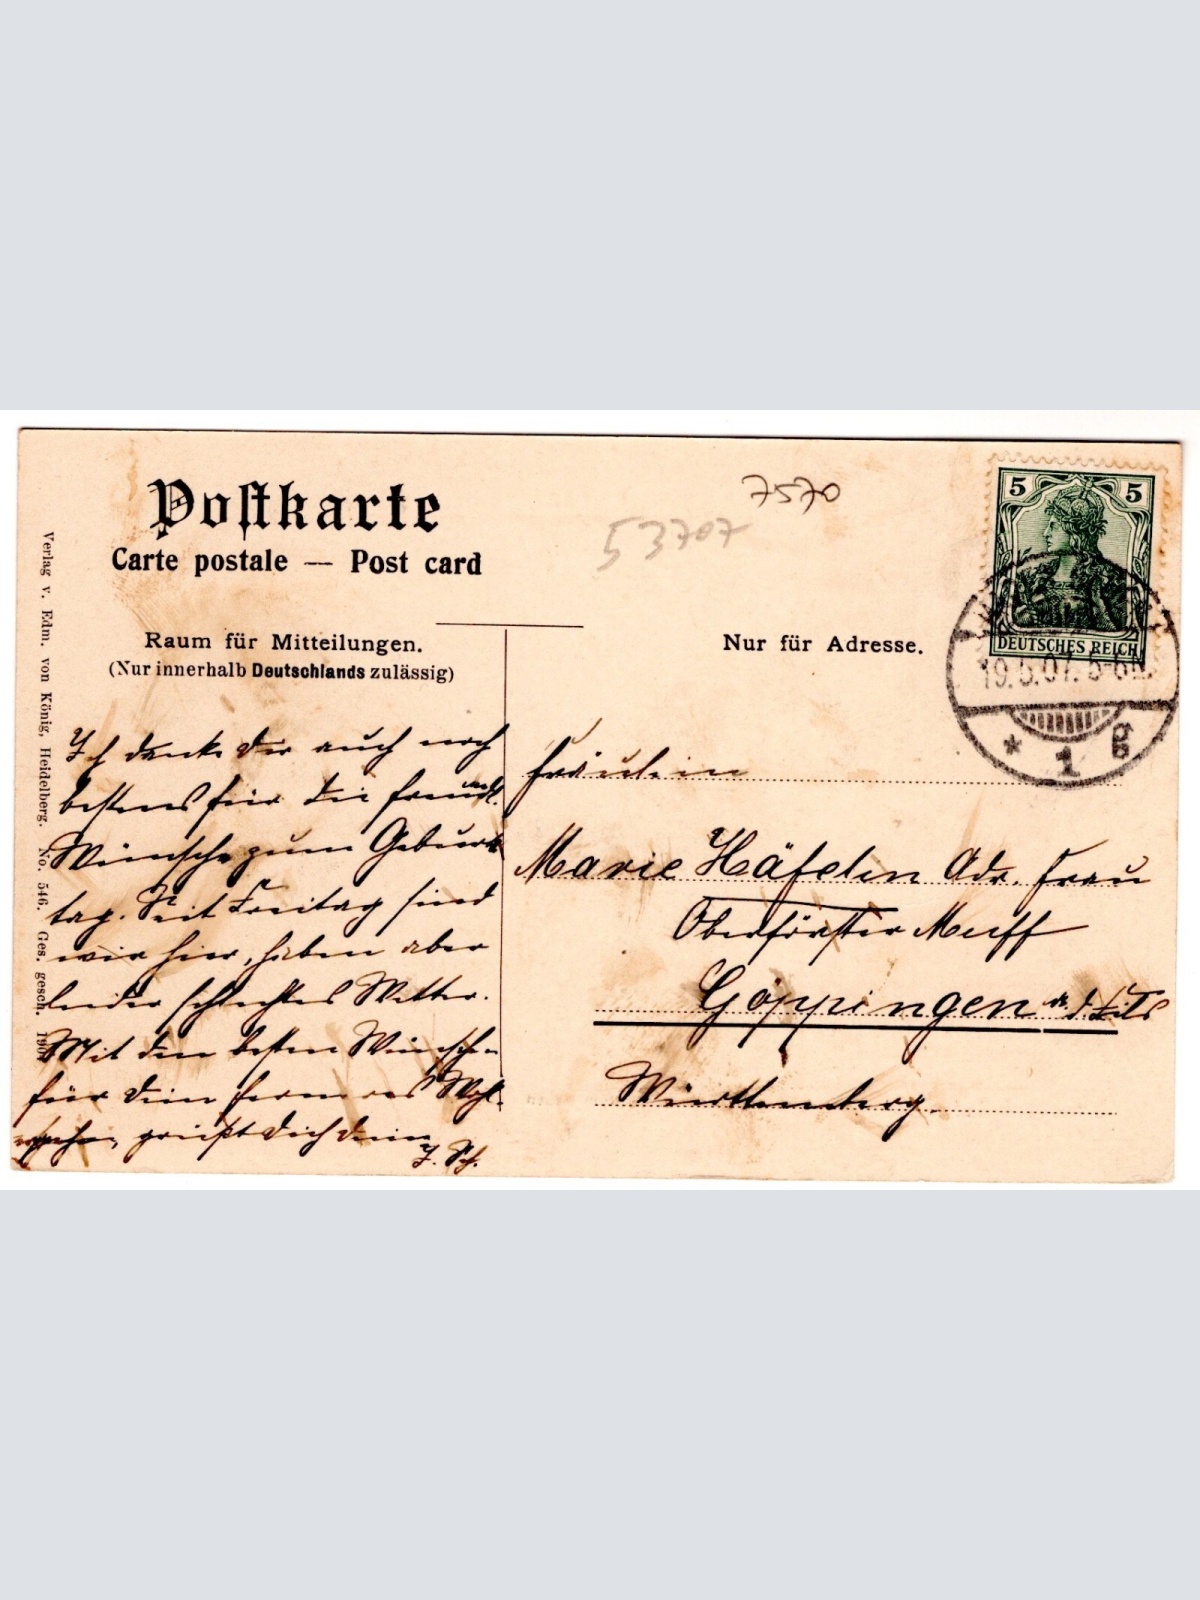 Postkarte
Carte postale — Post card
7570
53707
5 5
DEUTSCHES REICH
19.5.07. 5-6N.
* 1 g
Raum für Mitteilungen.
(Nur innerhalb Deutschlands zulässig)
Nur für Adresse.
Verlag v. Edm. von König, Heidelberg. No. 546. Ges. gesch. 1907
Ich danke Dir auch noch
bestens für die freundl.
Wünsche zum Geburts
tag. Seit Freitag sind
wir hier, haben aber
leider schlechtes Wetter.
Mit den besten Wünschen
für Dein ferneres Wohl-
ergehen, grüßt Dich Deine
J. Sch.
Fräulein
Marie Häfelin Adr. Frau
Oberförster Meiff
Göppingen a. d. Fils
Württemberg.